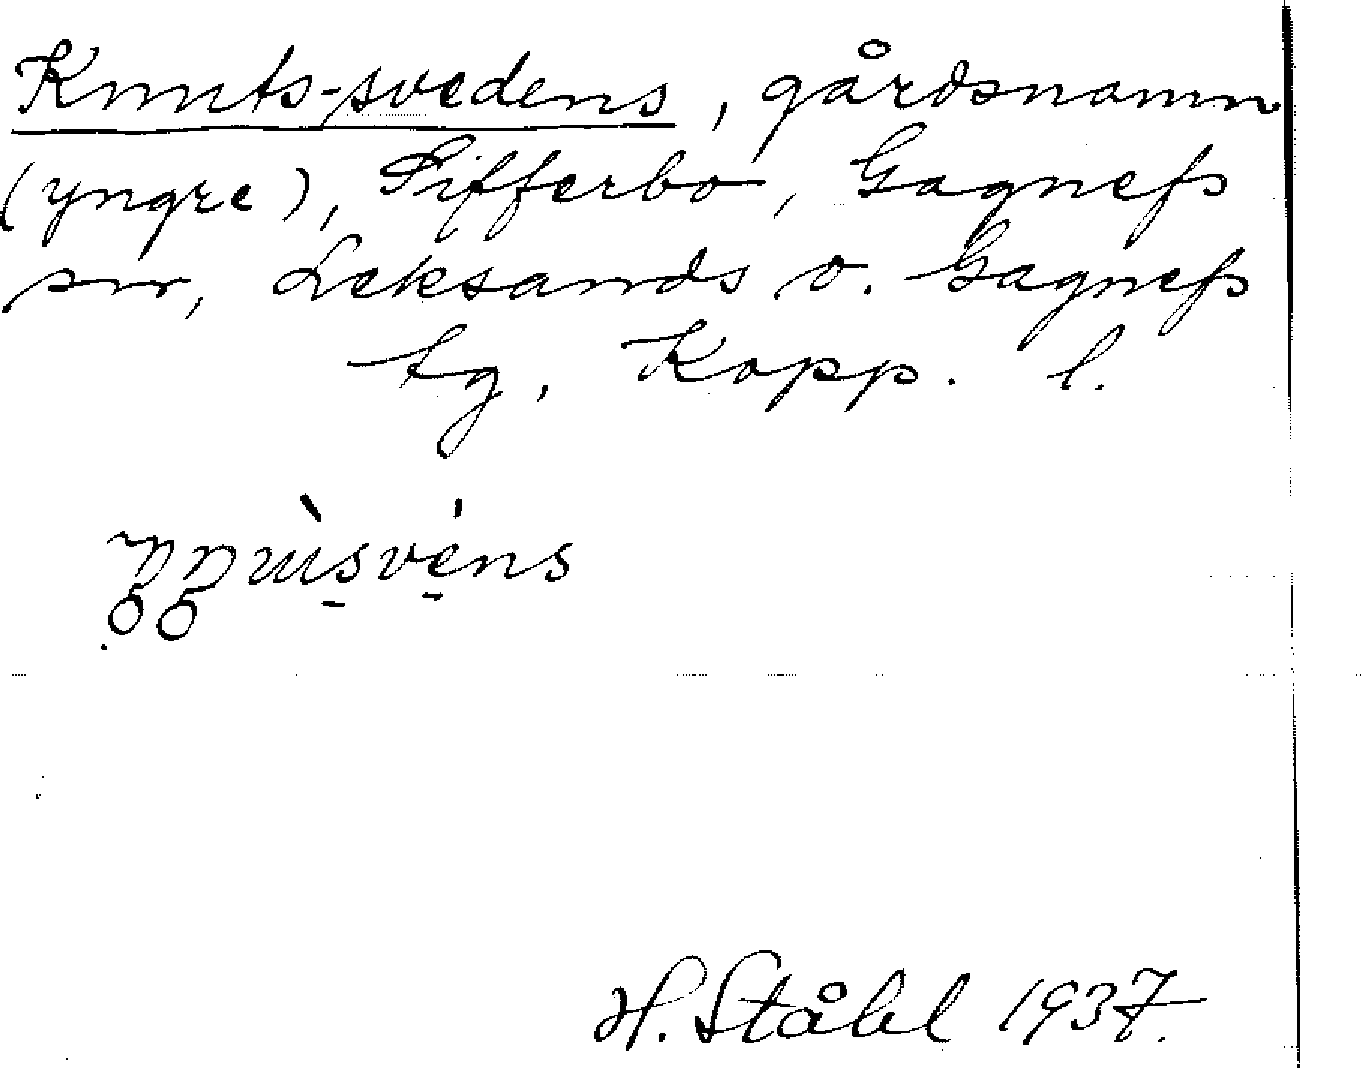 Knuts-svedens, gårdsnamn
(yngre), Sifferbo, Gagnefs
sn, Leksands o. Gagnefs
tg, Kopp. l.
H. Ståhl 1937.